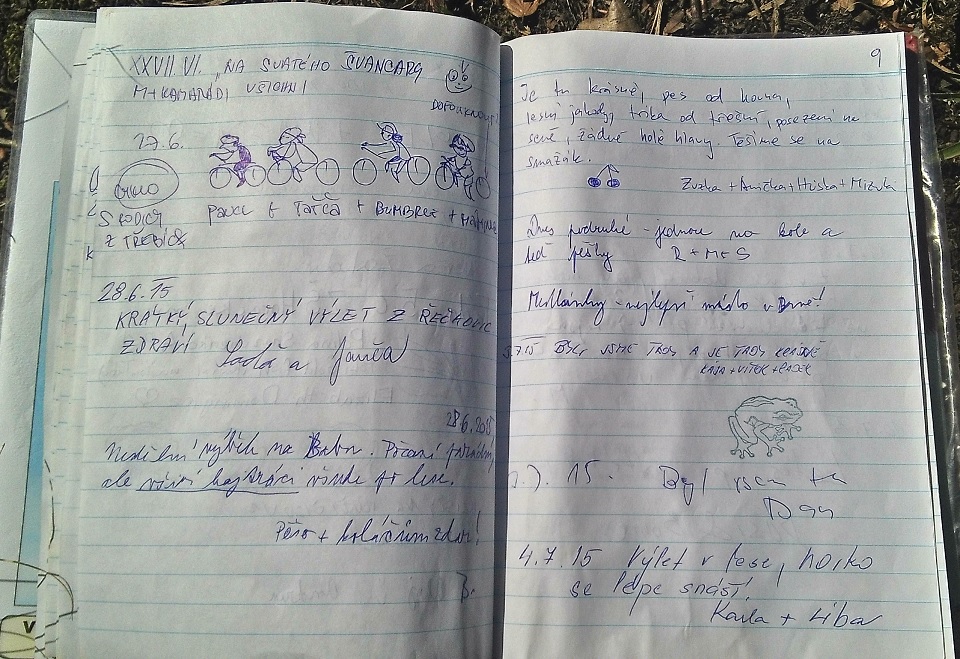 XXVII. VI. „NA SVATÉHO ŠVANCARA
M+KAMARÁDI, VŠICHNI
DOFOUKNOUT!
27.6.
S RODIČI
Z TŘEBÍČE
+ TATČA + BUMBRE +
28.6.15
KRÁTKÝ, SLUNEČNÝ VÝLET Z ŘEČKOVIC
ZDRAVÍ
Laďa a Janča
28.6.2015
Nedělní výběh na Babu. Počasí parádní,
ale všude po lese.
Péro + koláčům zdar!
B.
9
Je tu krásně, pes od hovna,
lesní jahody, trika od třešní, posezení na
seně, žádné holé hlavy. Těšíme se na
smažák.
Zuzka + Anička + +
Dnes podruhé - jednou na kole a
teď pěšky R + M + S
Medlánky - nejlepší místo v Brně!
.7.15 BYLI JSME TADY A JE TADY KRÁSNĚ
KÁJA + VÍTEK + RADEK
.7. 15. Byl jsem tu
Dan
4.7.15 Výlet v lese, horko
se lépe snáší!
Karla + Libor
V